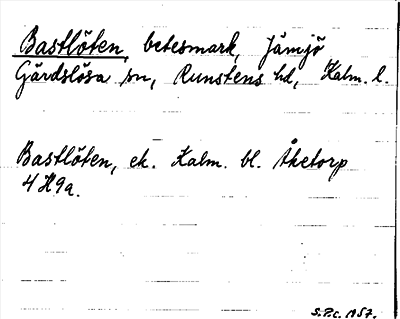 Bastlöten, betesmark, Jämjö
Gärdslösa sn, Runstens hd, Kalm. l.
Bastlöten, ek. Kalm. bl. Åketorp
4 H 9a.
S.P.c. 1957.